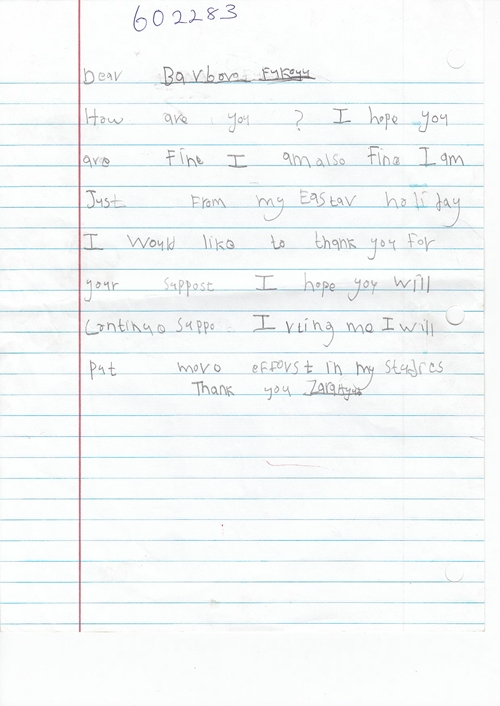 602283
Dear Barbara
How are you ? I hope you
are Fine I am also Fine I am
Just From my Eastar holiday
I Would like to thank you For
your suppost I hope you will
Continue suppo I rting me I will
put more effort in my studies
Thank you